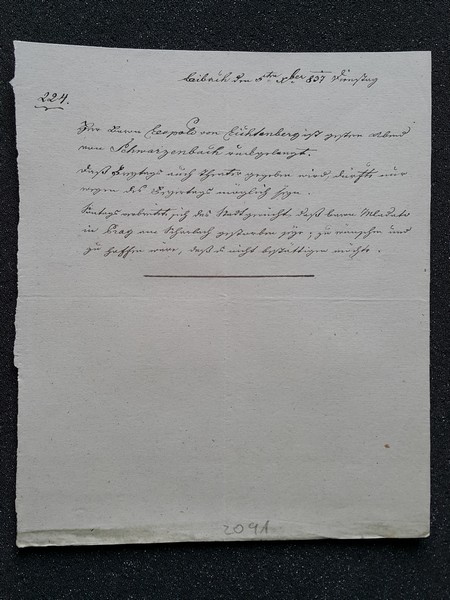 Laibach den 5ten Xber 837 Dienstag
224.
Herr Baron Leopold von Lichtenberg ist gestern Abend
von Schwarzenbach zurückgelangt.
Daß Freytags auch Theater gegeben wird, dürfte nur
wegen des Feyertags möglich seyn.
Sontags verbreitete sich das Stadtgerücht daß Baron
in Prag am Scharlach gestorben sey; zu wünschen und
zu hoffen wäre, daß es nicht bestättigen möchte.
209A